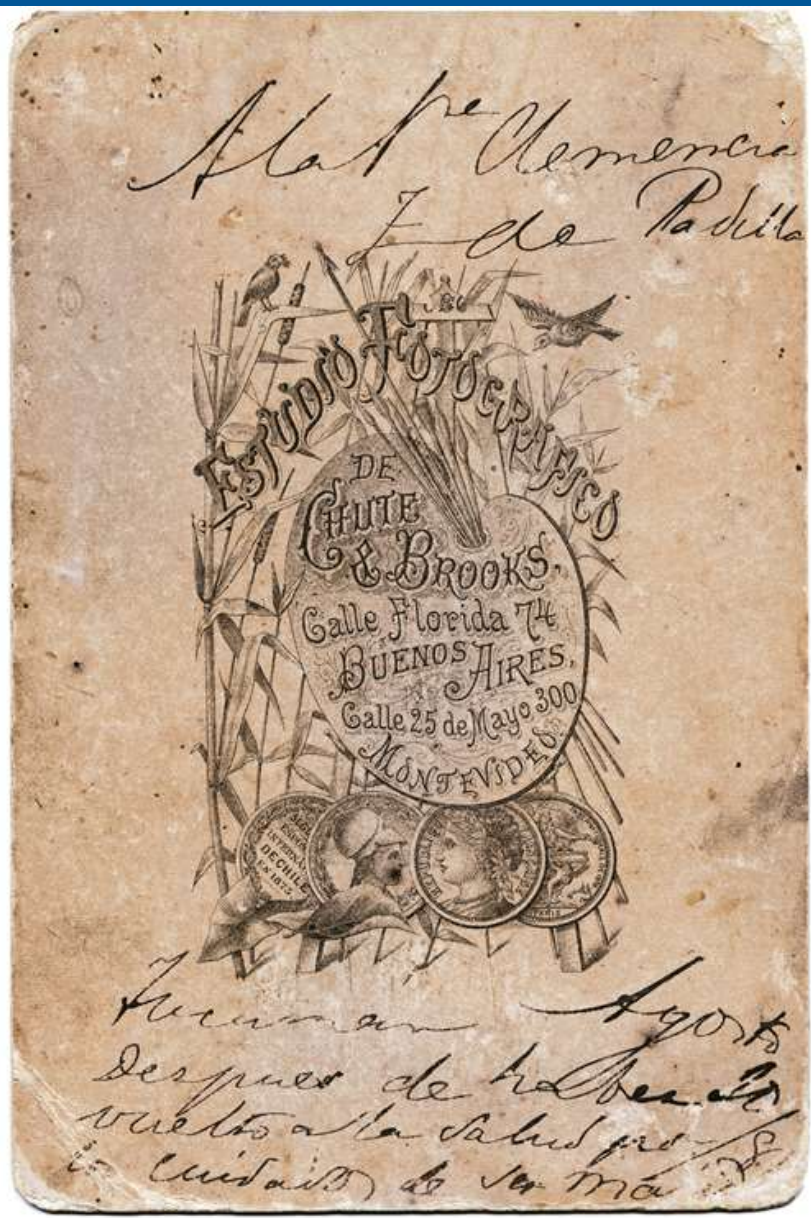 A la Sra Clemencia
Z de Padilla
ESTUDIO FOTOGRÁFICO
DE
CHUTE
& BROOKS.
Calle Florida 74
BUENOS AIRES.
Calle 25 de Mayo 300
MONTEVIDEO
INTERNA
DE CHILE
EN 1875
PARIS
Tucuman Agosto
Despues de haber
vuelto a la salud
cuidado de su ma